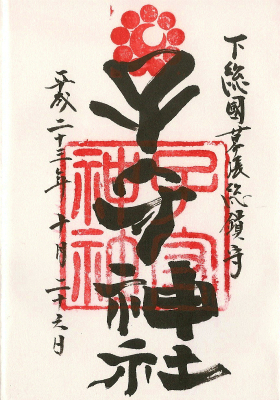 下総國幕張総鎮守
子守神社
子守神社
平成二十三年十月二十六日